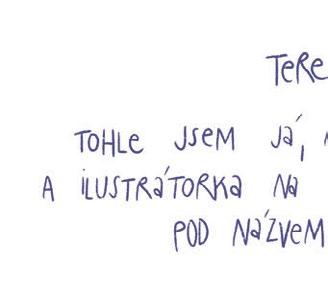 TeRe
TOHLe JSEM JÁ,
A ILUSTRÁTORKA NA
POD NÁZVEM